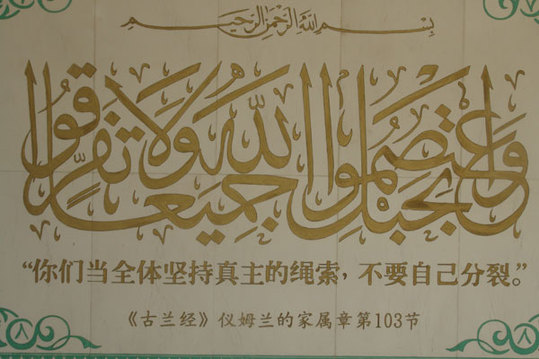 بسم الله الرحمن الرحيم
واعتصموا بحبل الله جميعا ولا تفرقوا
“你们当全体坚持真主的绳索，不要自己分裂。”
《古兰经》仪姆兰的家属章第103节